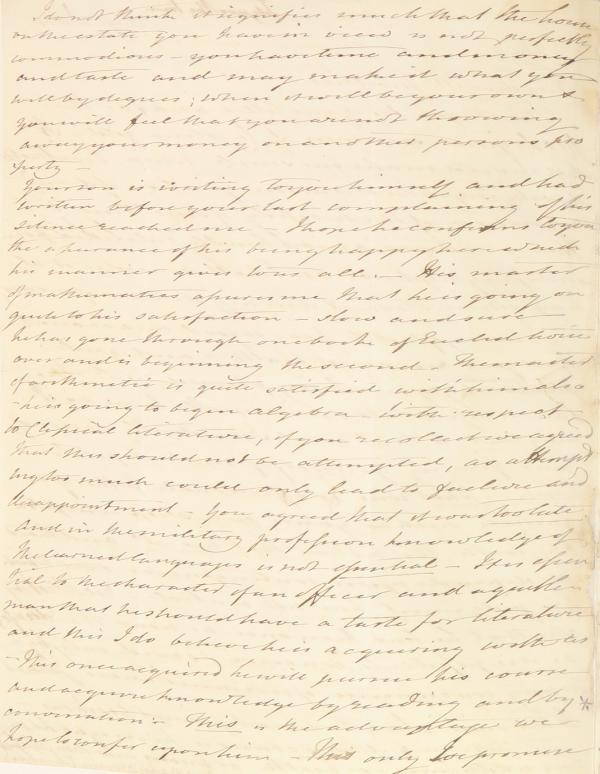 I do not think it signifies much that the house
on the estate you have in view is not perfectly
commodious – you have time and money
and taste and may make it what you
will by degrees; when it will be your own &
you will feel that you are not throwing
away your money on another person's pro
perty –
Your son is writing to you himself and had
written before your last complaining of his
silence reached me – I hope he confirms to you
the assurance of his being happy here which
his manner gives to us all. – His master
of mathematics assures me that he is going on
quite to his satisfaction – slow and sure
he has gone through one book of Euclid twice
over and is beginning the second – The master
of arithmetic is quite satisfied with him also
– he is going to begin algebra – with respect
to Classical literature, if you recollect we agreed
that this should not be attempted, as attempt
ing too much could only lead to failure and
disappointment – You agreed that it was too late.
And in the military profession knowledge of
the learned languages is not essential – It is essen
tial to the character of an officer and a gentle
man that he should have a taste for literature
and this I do believe he is acquiring with us
– This once acquired he will pursue his course
and acquire knowledge by reading and by *
conversation – This is the advantage we
hope to confer upon him – This only I can promise